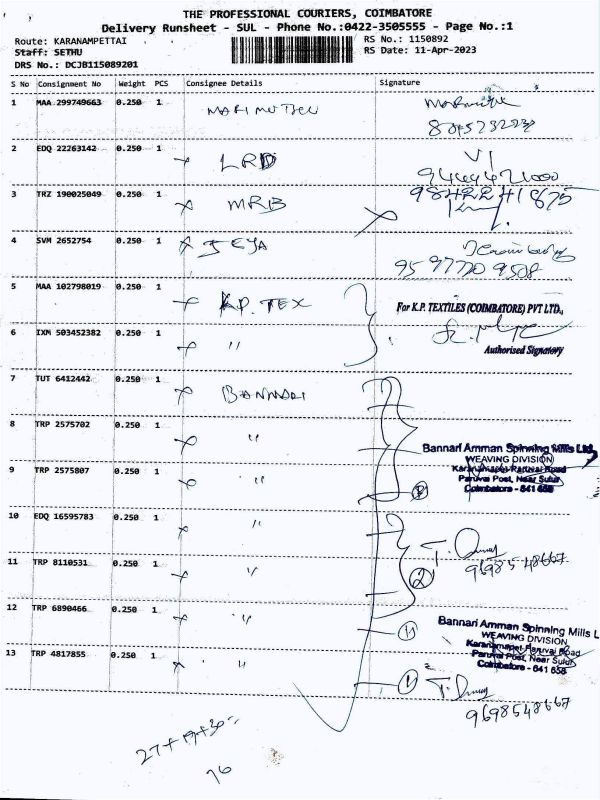 THE PROFESSIONAL COURIERS, COIMBATORE
Delivery Runsheet - SUL - Phone No.:0422-3505555 - Page No.:1
Route: KARANAMPETTAI RS No.: 1150892
Staff: SETHU RS Date: 11-Apr-2023
DRS No.: DCJB115089201
S No Consignment No Weight PCS Consignee Details Signature
1 MAA 299749663 0.250 1 MARIMUTHU
2 EDQ 22263142 0.250 1 LRD
3 TRZ 190025049 0.250 1 MRB
4 SVM 2652754 0.250 1 JEYA
95 97720 9508
5 MAA 102798019 0.250 1 K.P. TEX For K.P. TEXTILES (COIMBATORE) PVT LTD.,
6 IXM 503452382 0.250 1 "
Authorised Signatory
7 TUT 6412442 0.250 1 BANNARI
8 TRP 2575702 0.250 1 "
Bannari Amman Spinning Mills Ltd.
WEAVING DIVISION
9 TRP 2575807 0.250 1 " Karanampet Paruvai Road
Paruvai Post, Near Sulur
Coimbatore - 641 658
10 EDQ 16595783 0.250 1 "
11 TRP 8110531 0.250 1 " 2 9698548667
12 TRP 6890466 0.250 1 "
Bannari Amman Spinning Mills L
WEAVING DIVISION
Karanampet Paruvai Road
Paruvai Post, Near Sulur
Coimbatore - 641 658
13 TRP 4817855 0.250 1 "
9698548667
27+19+30=
76